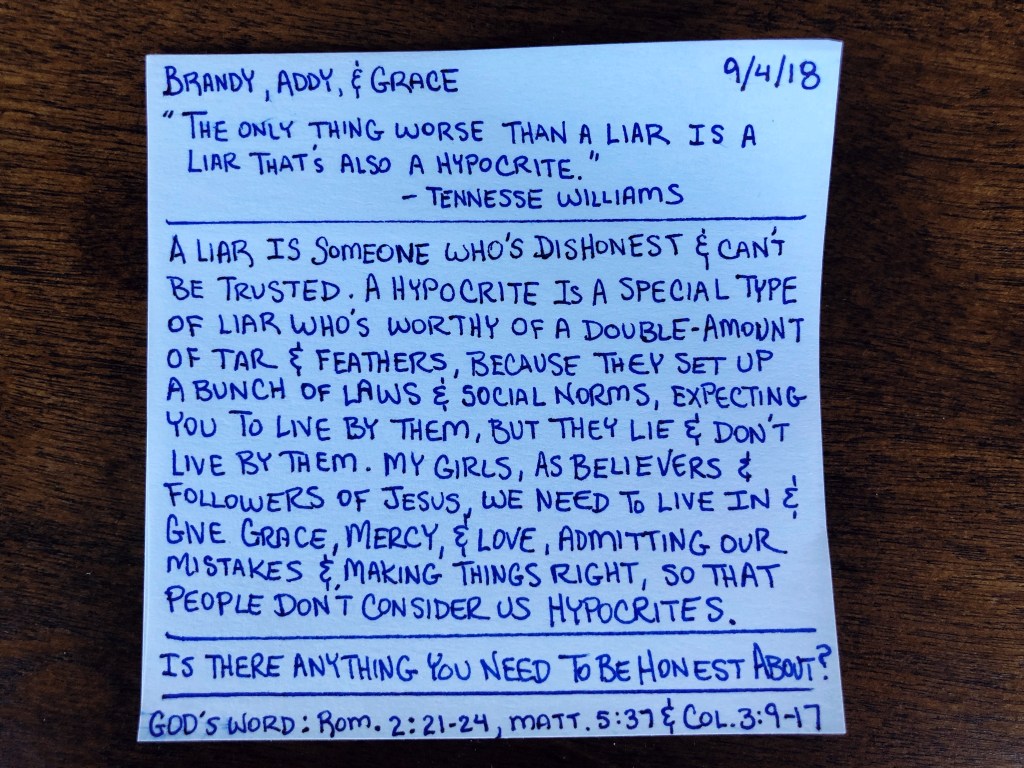 BRANDY, ADDY, & GRACE 9/4/18
"THE ONLY THING WORSE THAN A LIAR IS A
LIAR THAT'S ALSO A HYPOCRITE."
- TENNESSE WILLIAMS
A LIAR IS SOMEONE WHO'S DISHONEST & CAN'T
BE TRUSTED. A HYPOCRITE IS A SPECIAL TYPE
OF LIAR WHO'S WORTHY OF A DOUBLE-AMOUNT
OF TAR & FEATHERS, BECAUSE THEY SET UP
A BUNCH OF LAWS & SOCIAL NORMS, EXPECTING
YOU TO LIVE BY THEM, BUT THEY LIE & DON'T
LIVE BY THEM. MY GIRLS, AS BELIEVERS &
FOLLOWERS OF JESUS, WE NEED TO LIVE IN &
GIVE GRACE, MERCY, & LOVE, ADMITTING OUR
MISTAKES & MAKING THINGS RIGHT, SO THAT
PEOPLE DON'T CONSIDER US HYPOCRITES.
IS THERE ANYTHING YOU NEED TO BE HONEST ABOUT?
GOD'S WORD: ROM. 2:21-24, MATT. 5:37 & COL. 3:9-17